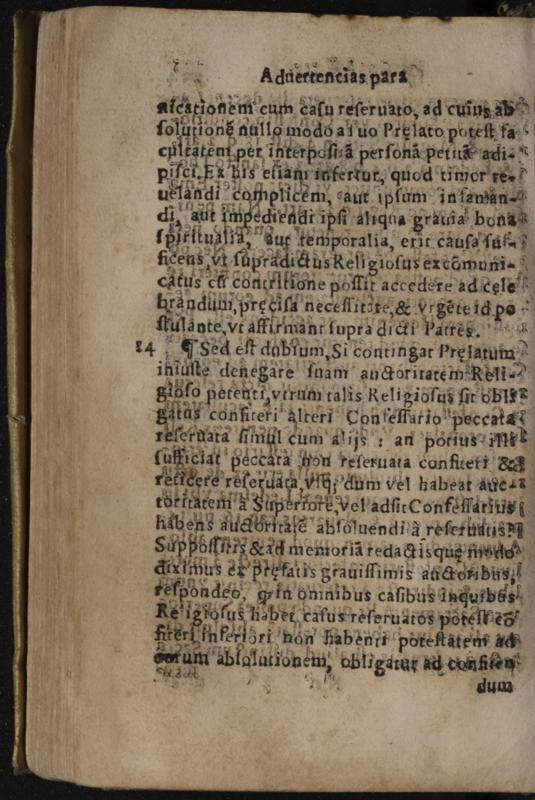 Aduertencias para
nicationem cum casu reseruato, ad cuius ab
solutionẽ nullo modo a suo Pręlato potest fa
cultatem per interpositã personã petitã adi-
pisci. Ex his etiam infertur, quod timor re-
uelandi complicem, aut ipsum infaman-
di, aut impediendi ipsi aliqua grauia bona
spiritualia, aut temporalia, erit causa suf-
ficens, vt supradictus Religiosus excõmuni-
catus cũ contritione possit accedere ad cele
brandum, pręcisa necessitate, & vrgẽte id po
stulante, vt affirmant supra dicti Patres.
84 ¶ Sed est dubium, Si contingat Pręlatum
iniuste denegare suam auctoritatem Reli-
gioso petenti, vtrum talis Religiosus sit obli
gatus confiteri alteri Confessario peccata
reseruata simul cum alijs : an potius illi
sufficiat peccata non reseruata confiteri &
reticere reseruata, vsq; dum vel habeat auc-
toritatem à Superiore, vel adsit Confessarius
habens auctoritatẽ absoluendi à reseruatis?
Suppossitis & ad memoriã redactis quę modo
diximus ex pręfatis grauissimis auctoribus,
respondeo, ꝙ in omnibus casibus inquibus
Religiosus habet casus reseruatos potest cõ
fiteri inferiori non habenti potestatem ad
eorum absolutionem, obligatur ad confiten
dum